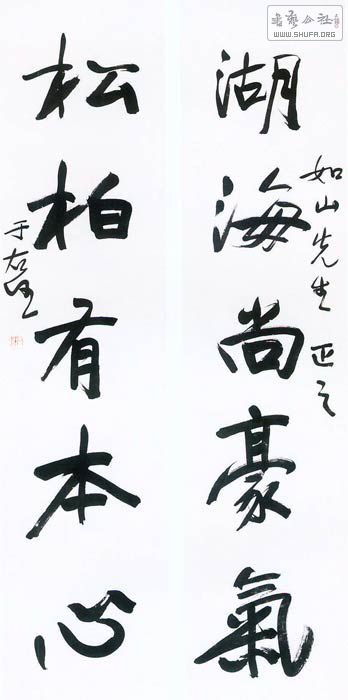 湖海尚豪氣
如山先生 正之
松柏有本心
于右任
書藝公社
WWW.SHUFA.ORG